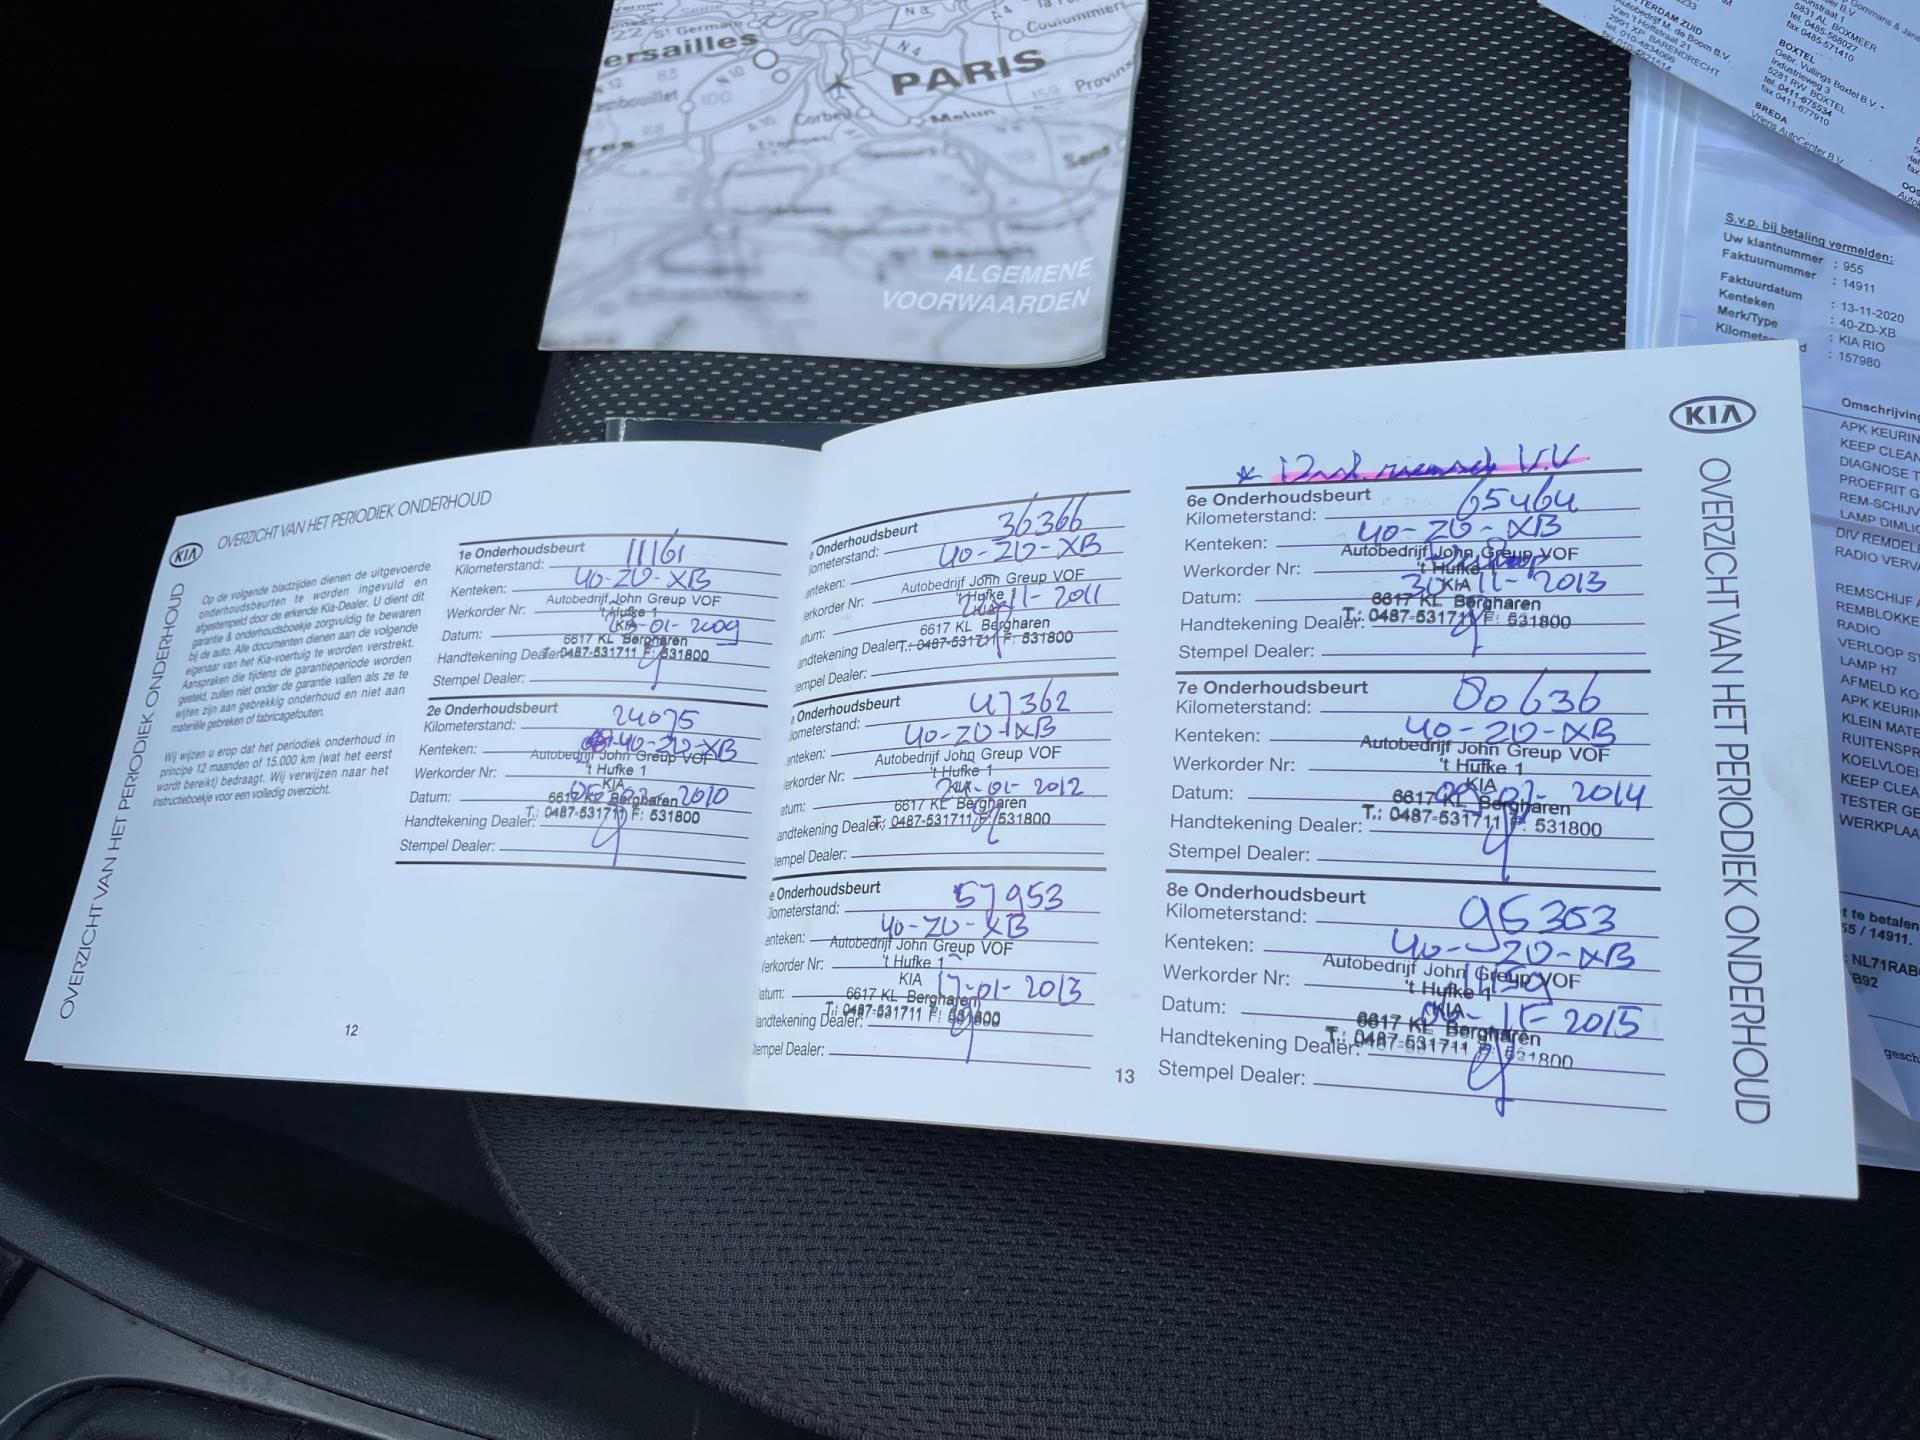 ersailles
St Germain
N 4
PARIS
Coulommiers
Provins
Corbeil
Melun
Sens
ALGEMENE
VOORWAARDEN
ROTTERDAM ZUID
Autobedrijf M. de Boom B.V.
Van 't Hoffstraat 21
2991 XP BARENDRECHT
tel. 010-4834066
5831 AL BOXMEER
tel. 0485-568027
fax 0485-571410
BOXTEL
Gebr. Vullings Boxtel B.V.
Industrieweg 3
5281 RW BOXTEL
tel. 0411-675534
fax 0411-677910
BREDA
Vriens AutoCenter B.V.
S.v.p. bij betaling vermelden:
Uw klantnummer : 955
Faktuurnummer : 14911
Faktuurdatum : 13-11-2020
Kenteken : 40-ZD-XB
Merk/Type : KIA RIO
Kilometer d : 157980
Omschrijving
APK KEURIN
KEEP CLEAN
DIAGNOSE T
PROEFRIT G
REM-SCHIJV
LAMP DIMLIC
DIV REMDELE
RADIO VERVA
REMSCHIJF A
REMBLOKKE
RADIO
VERLOOP ST
LAMP H7
AFMELD KO
APK KEURIN
KLEIN MATE
RUITENSPR
KOELVLOEI
KEEP CLEA
TESTER GE
WERKPLAA
t te betalen
55 / 14911.
KIA
OVERZICHT VAN HET PERIODIEK ONDERHOUD
OVERZICHT VAN HET PERIODIEK ONDERHOUD
Op de volgende bladzijden dienen de uitgevoerde
onderhoudsbeurten te worden ingevuld en
afgestempeld door de erkende Kia-Dealer. U dient dit
garantie & onderhoudsboekje zorgvuldig te bewaren
bij de auto. Alle documenten dienen aan de volgende
eigenaar van het Kia-voertuig te worden verstrekt.
Aanspraken die tijdens de garantieperiode worden
gesteld, zullen niet onder de garantie vallen als ze te
wijten zijn aan gebrekkig onderhoud en niet aan
materiële gebreken of fabricagefouten.
Wij wijzen u erop dat het periodiek onderhoud in
principe 12 maanden of 15.000 km (wat het eerst
wordt bereikt) bedraagt. Wij verwijzen naar het
instructieboekje voor een volledig overzicht.
1e Onderhoudsbeurt
Kilometerstand: 11161
Kenteken: 40-ZD-XB
Autobedrijf John Greup VOF
Werkorder Nr: 't Hufke 1
KIA
Datum: -01-2009
6617 KL Bergharen
Handtekening Dealer: T.: 0487-531711 F: 531800
Stempel Dealer:
2e Onderhoudsbeurt
Kilometerstand: 24075
Kenteken: 40-ZD-XB
Autobedrijf John Greup VOF
Werkorder Nr: 't Hufke 1
KIA
Datum: 2010
6617 KL Bergharen
Handtekening Dealer: T.: 0487-531711 F: 531800
Stempel Dealer:
12
e Onderhoudsbeurt
ilometerstand: 36366
enteken: 40-ZD-XB
Autobedrijf John Greup VOF
erkorder Nr: 't Hufke 1
KIA
atum: 11-2011
6617 KL Bergharen
andtekening Dealer: T.: 0487-531711 F: 531800
tempel Dealer:
e Onderhoudsbeurt
ilometerstand: 47362
enteken: 40-ZD-XB
Autobedrijf John Greup VOF
erkorder Nr: 't Hufke 1
KIA
atum: -01-2012
6617 KL Bergharen
andtekening Dealer: T.: 0487-531711 F: 531800
tempel Dealer:
e Onderhoudsbeurt
ilometerstand: 57953
enteken: 40-ZD-XB
Autobedrijf John Greup VOF
erkorder Nr: 't Hufke 1
KIA
atum: 17-01-2013
6617 KL Bergharen
andtekening Dealer: T.: 0487-531711 F: 531800
tempel Dealer:
13
KIA
V.V
6e Onderhoudsbeurt
Kilometerstand: 65464
Kenteken: 40-ZD-XB
Autobedrijf John Greup VOF
Werkorder Nr: 't Hufke 1
KIA
Datum: 30-11-2013
6617 KL Bergharen
Handtekening Dealer: T.: 0487-531711 F: 531800
Stempel Dealer:
7e Onderhoudsbeurt
Kilometerstand: 80636
Kenteken: 40-ZD-XB
Autobedrijf John Greup VOF
Werkorder Nr: 't Hufke 1
KIA
Datum: 2014
6617 KL Bergharen
Handtekening Dealer: T.: 0487-531711 F: 531800
Stempel Dealer:
8e Onderhoudsbeurt
Kilometerstand: 95303
Kenteken: 40-ZD-XB
Autobedrijf John Greup VOF
Werkorder Nr: 't Hufke 1
KIA
Datum: 2015
6617 KL Bergharen
Handtekening Dealer: T.: 0487-531711 F: 531800
Stempel Dealer:
OVERZICHT VAN HET PERIODIEK ONDERHOUD